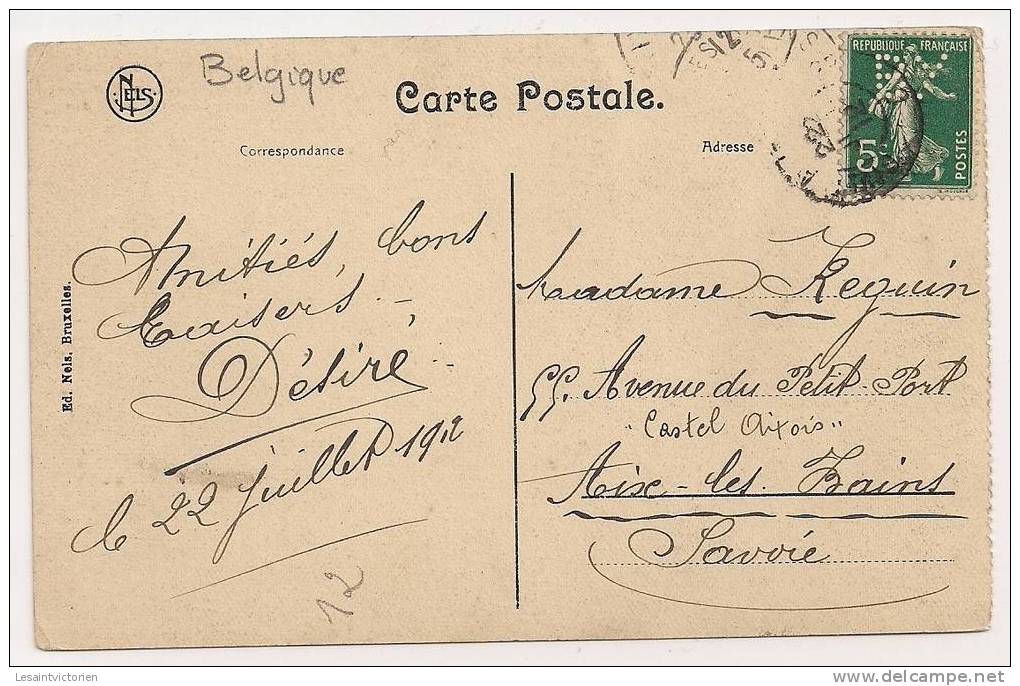 NELS
Belgique
Carte Postale.
Correspondance
Adresse
REPUBLIQUE FRANÇAISE
5c
POSTES
22
Amitiés, bons
baisers.-
Désiré.
le 22 juillet 1912
Ed. Nels, Bruxelles.
Madame Keguin
55. Avenue du Petit-Port
"Castel Aixois"
Aix-les-Bains
Savoie
12
Lesaintvictorien
delcampe.net